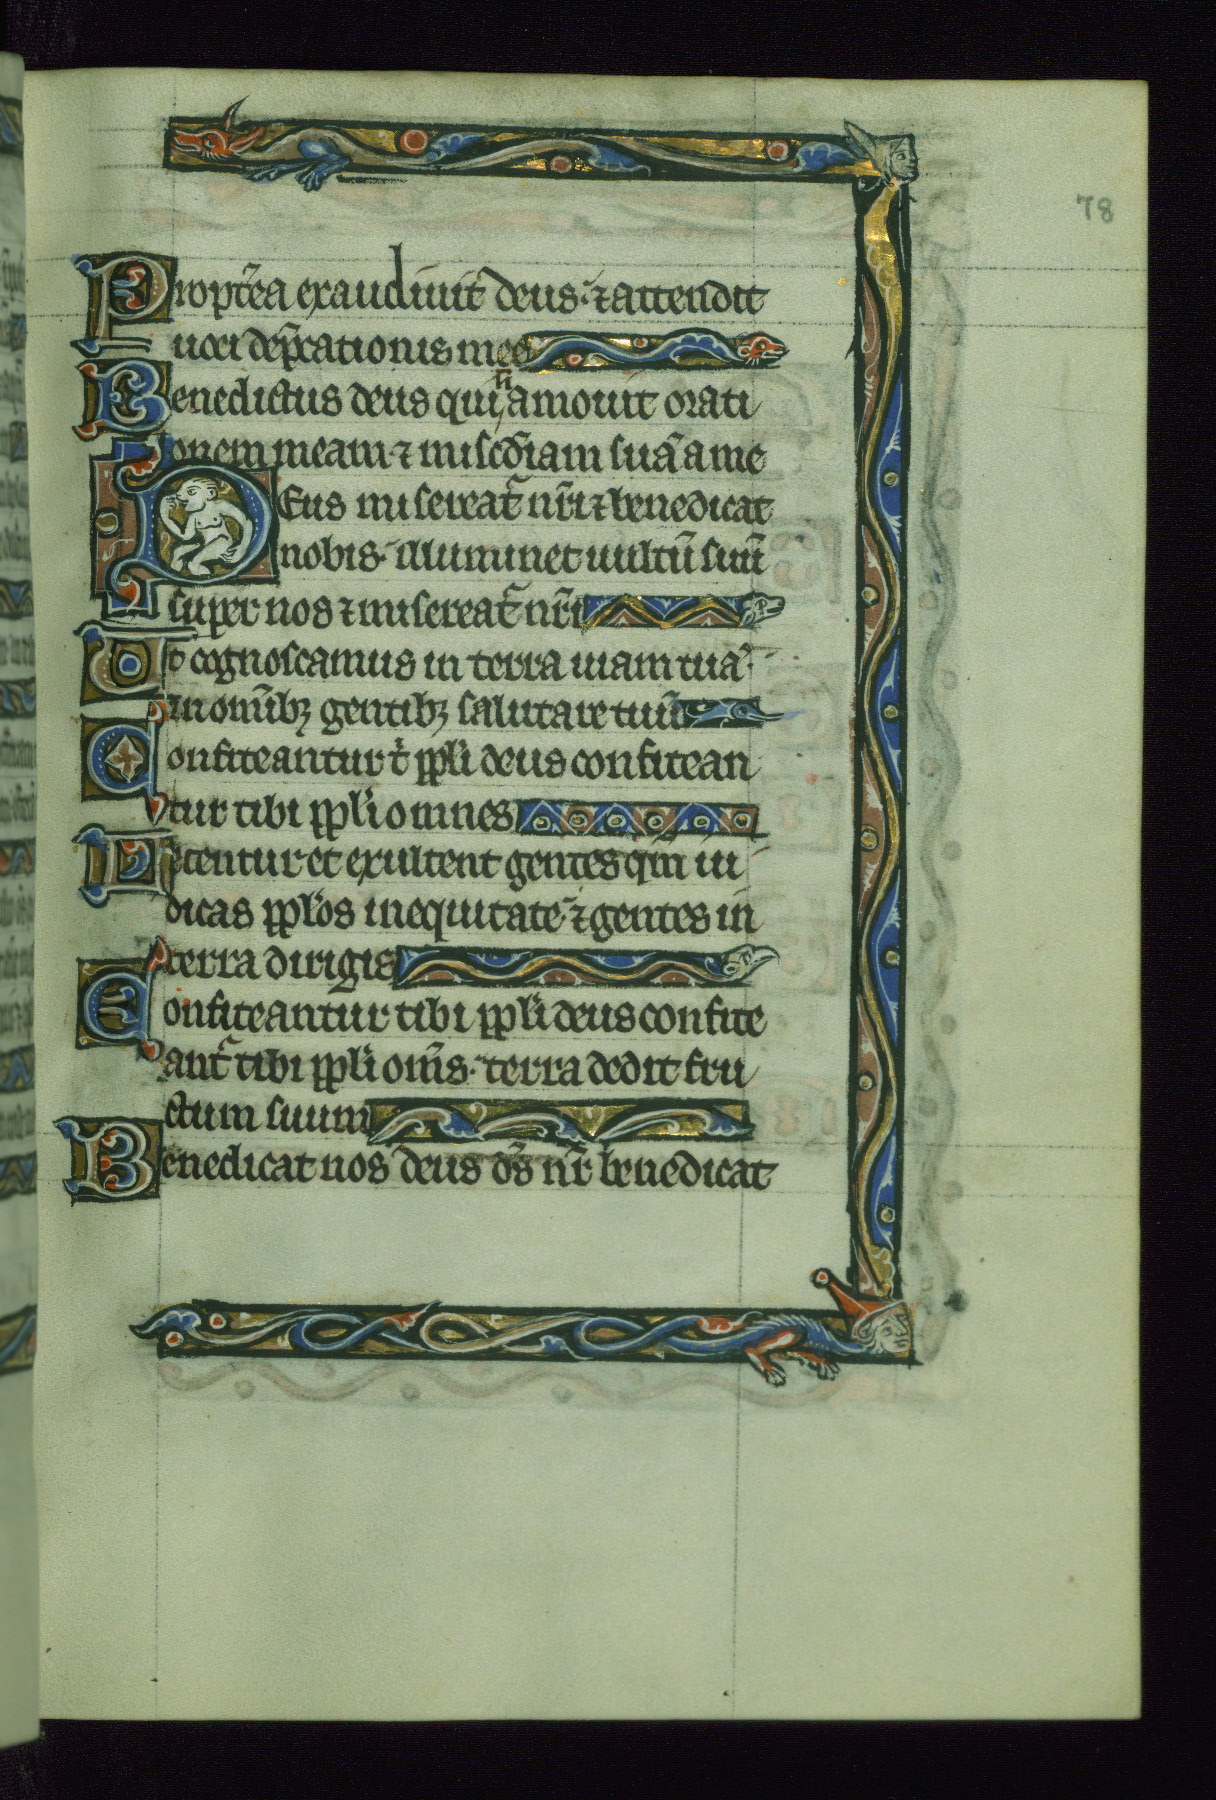 78
Propt̾ea exaudiuit deus· ⁊ attendit
uoci dep̄cationis mee
Benedictus deus qui n̄ amouit orati
onem meam· ⁊ misc̄diam suā a me
Deus misereat᷑ nr̄i ⁊ benedicat
nobis· illuminet uultū suū
super nos ⁊ misereat᷑ nr̄i
Ut cognoscamus in terra uiam tuā·
in om̄ibꝫ gentibꝫ salutare tuū
Confiteantur t̄ ppl̄i deus confitean
tur tibi ppl̄i omnes
Letentur et exultent gentes qm̄ iu
dicas ppl̄os in equitate· ⁊ gentes in
terra dirigis
Confiteantur tibi ppl̄i deus confite
ant᷑ tibi ppl̄i om̄s· terra dedit fru
ctum suum
Benedicat nos deus ds̄ nr̄ benedicat